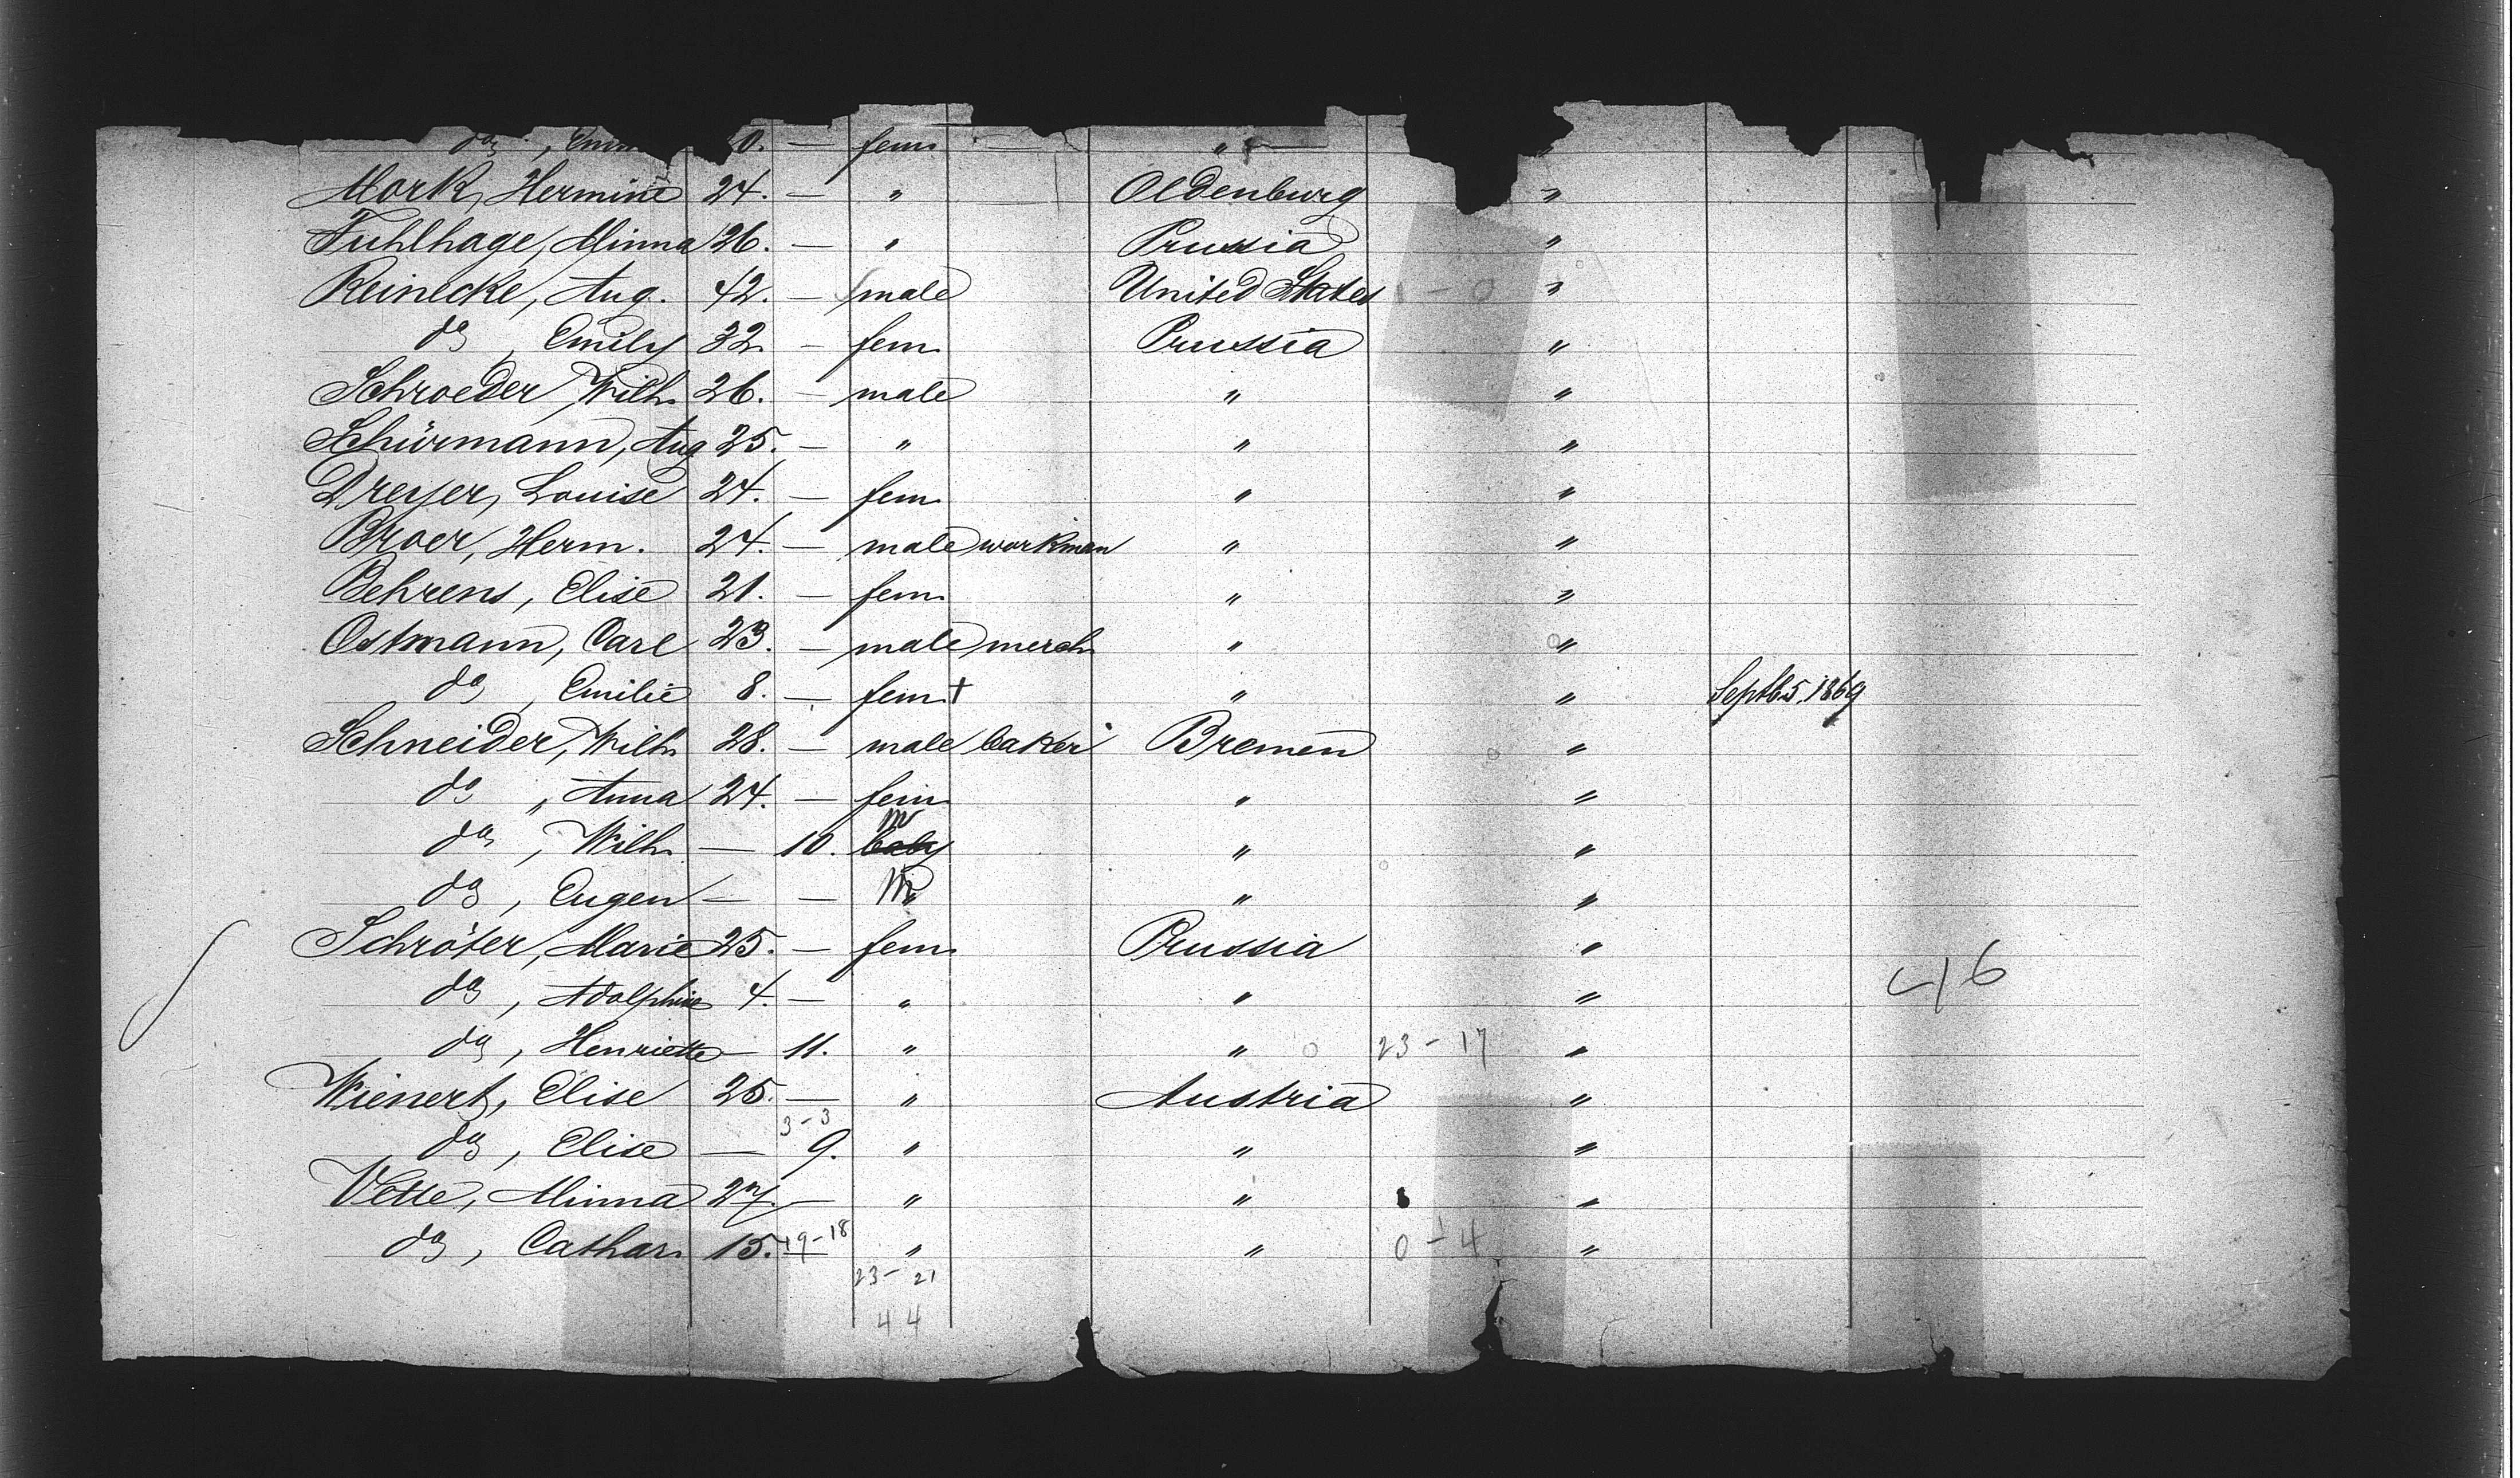 do , fem —
Mork, Hermine 24. — " Oldenburg "
Fuhlhage, Minna 26. — " Prussia "
Reinecke, Aug. 42. — male United States 1 - 0 "
do , Emily 32. — fem. Prussia "
Schroeder, Wilh. 26. — male " "
Schürmann, Aug 25. — " " "
Dreyer, Louise 24. — fem. " "
Broer, Herm. 24. — male workman " "
Behrens, Elise 21. — fem. " "
Ostmann, Carl 23. — male merch. " "
do , Emilie 8. — fem. + " " Septb 5. 1869
Schneider, Wilh. 28. — male baker Bremen "
do , Anna 24. — fem. " "
m
do , Wilh. — 10. baby " "
do , Eugen — — m " "
Schröter, Marie 25. — fem. Prussia "
do , Adolphine 4. — " " "
do , Henriette — 11. " " 0 23 - 17 "
Wienert, Elise 25. — " Austria "
3-3
do , Elise — 9. " " "
Vette, Minna 27. — " " "
do , Cathar. 15. — 19-18 " " 0 - 4 "
23 - 21
44